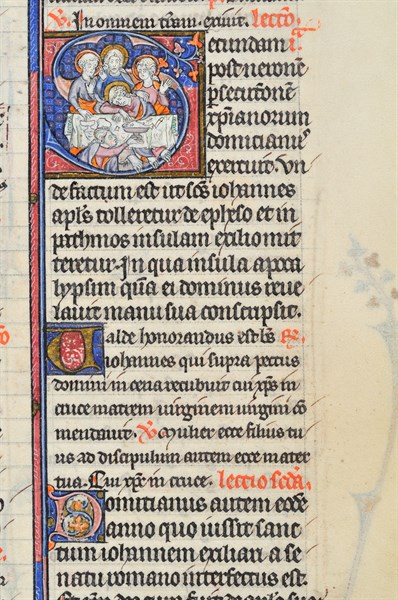 V. In omnem terram. exivit. Lectio. i.
Secundam
post neronē
psecutionē
xpianorum
domicianus
exercuit. Un
de factum est ut scs iohannes
apls tolleretur de epheso et in
pathmos insulam exilio mit
teretur. In qua insula apoca
lypsim quā ei dominus reve
lavit manu sua conscripsit.
Valde honorandus est bs R.
iohannes qui supra pectus
domini in cena recubuit cui xps in
cruce matrem virginem virgini cō
mendavit. V. Mulier ecce filius tu
us ad discipulum autem ecce mater
tua. Cui xpc in cruce. lectio scda.
Domitianus autem eodē
anno quo iussit sanc
tum iohannem exiliari a se
natu romano interfectus est.